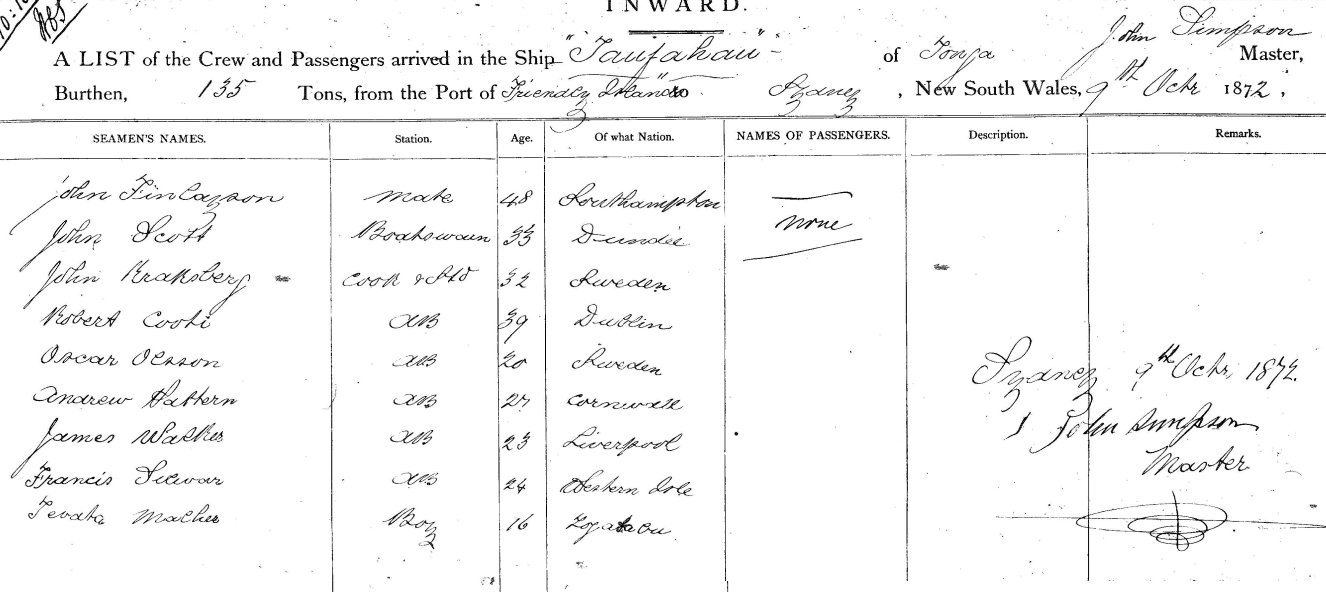 INWARD.
A LIST of the Crew and Passengers arrived in the Ship "Taufahau" of Tonga John Simpson Master,
Burthen, 135 Tons, from the Port of Friendly Islands to Sydney, New South Wales, 9th Octr 1872,
SEAMEN'S NAMES. Station. Age. Of what Nation. NAMES OF PASSENGERS. Description. Remarks.
John Finlayson Mate 48 Southampton
none
John Scott Boatswain 33 Dundee
John Kraksberg Cook & Std 32 Sweden
Robert AB 39 Dublin
Oscar Olsson AB 20 Sweden
Sydney 9th Octr, 1872.
Andrew Hattern AB 27 Cornwall
John Simpson
James Walker AB 23 Liverpool
Master
Francis AB 24 Western Isle
Tevata Boy 16